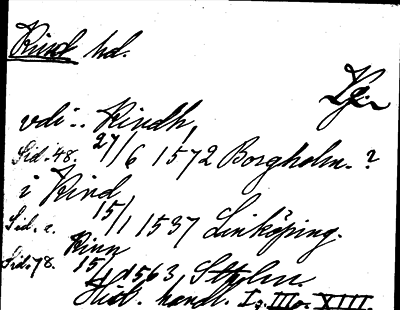 Kind hd.
Ög.
vdi.. Kindh
Sid. 48. 27/6 1572 Borgholm. ?
i Kind
Sid. 2. 15/1 1537 Linköping.
Kinn
Sid. 78. 15/1 1563, Sthlm.
Hist. handl. I, III o. XIII.